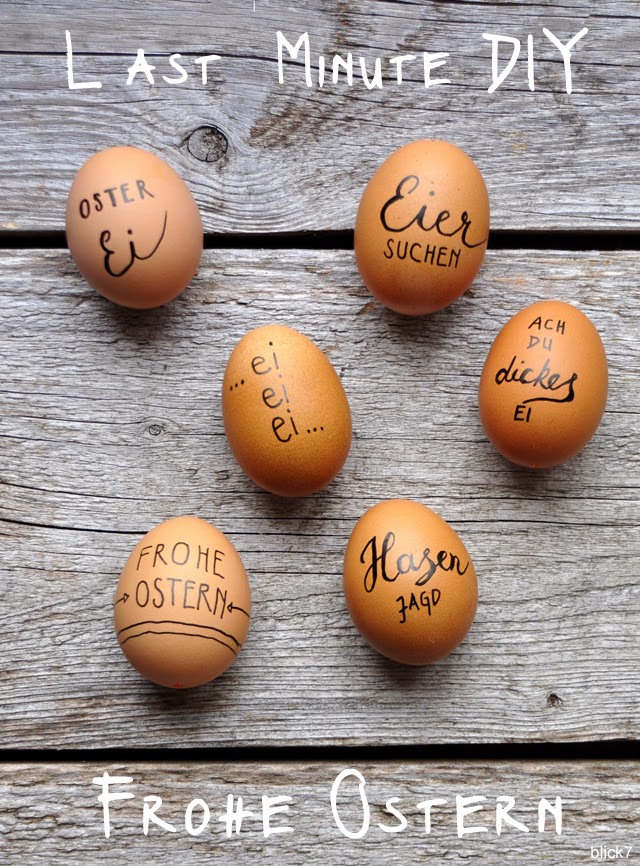 LAST MINUTE DIY
OSTER
Ei
Eier
SUCHEN
ACH
DU
dickes
EI
... ei
ei
ei ...
FROHE
OSTERN
Hasen
JAGD
FROHE OSTERN
blick7